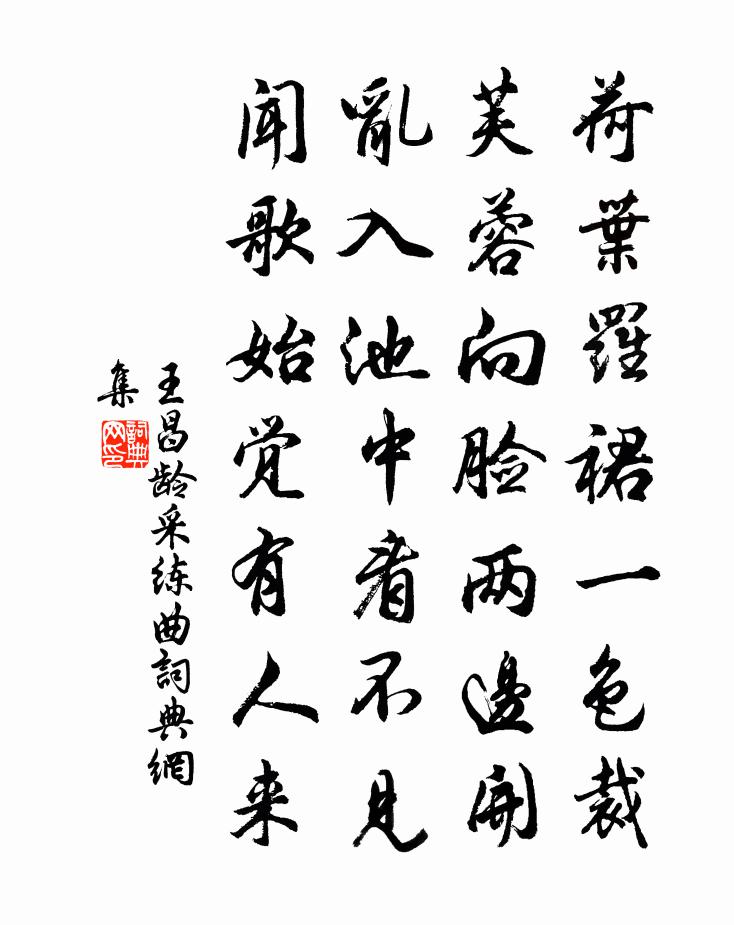 荷葉羅裙一色裁
芙蓉向脸两邊開
亂入池中看不見
闻歌始觉有人来
王昌龄采练曲詞典網
集
詞典网印